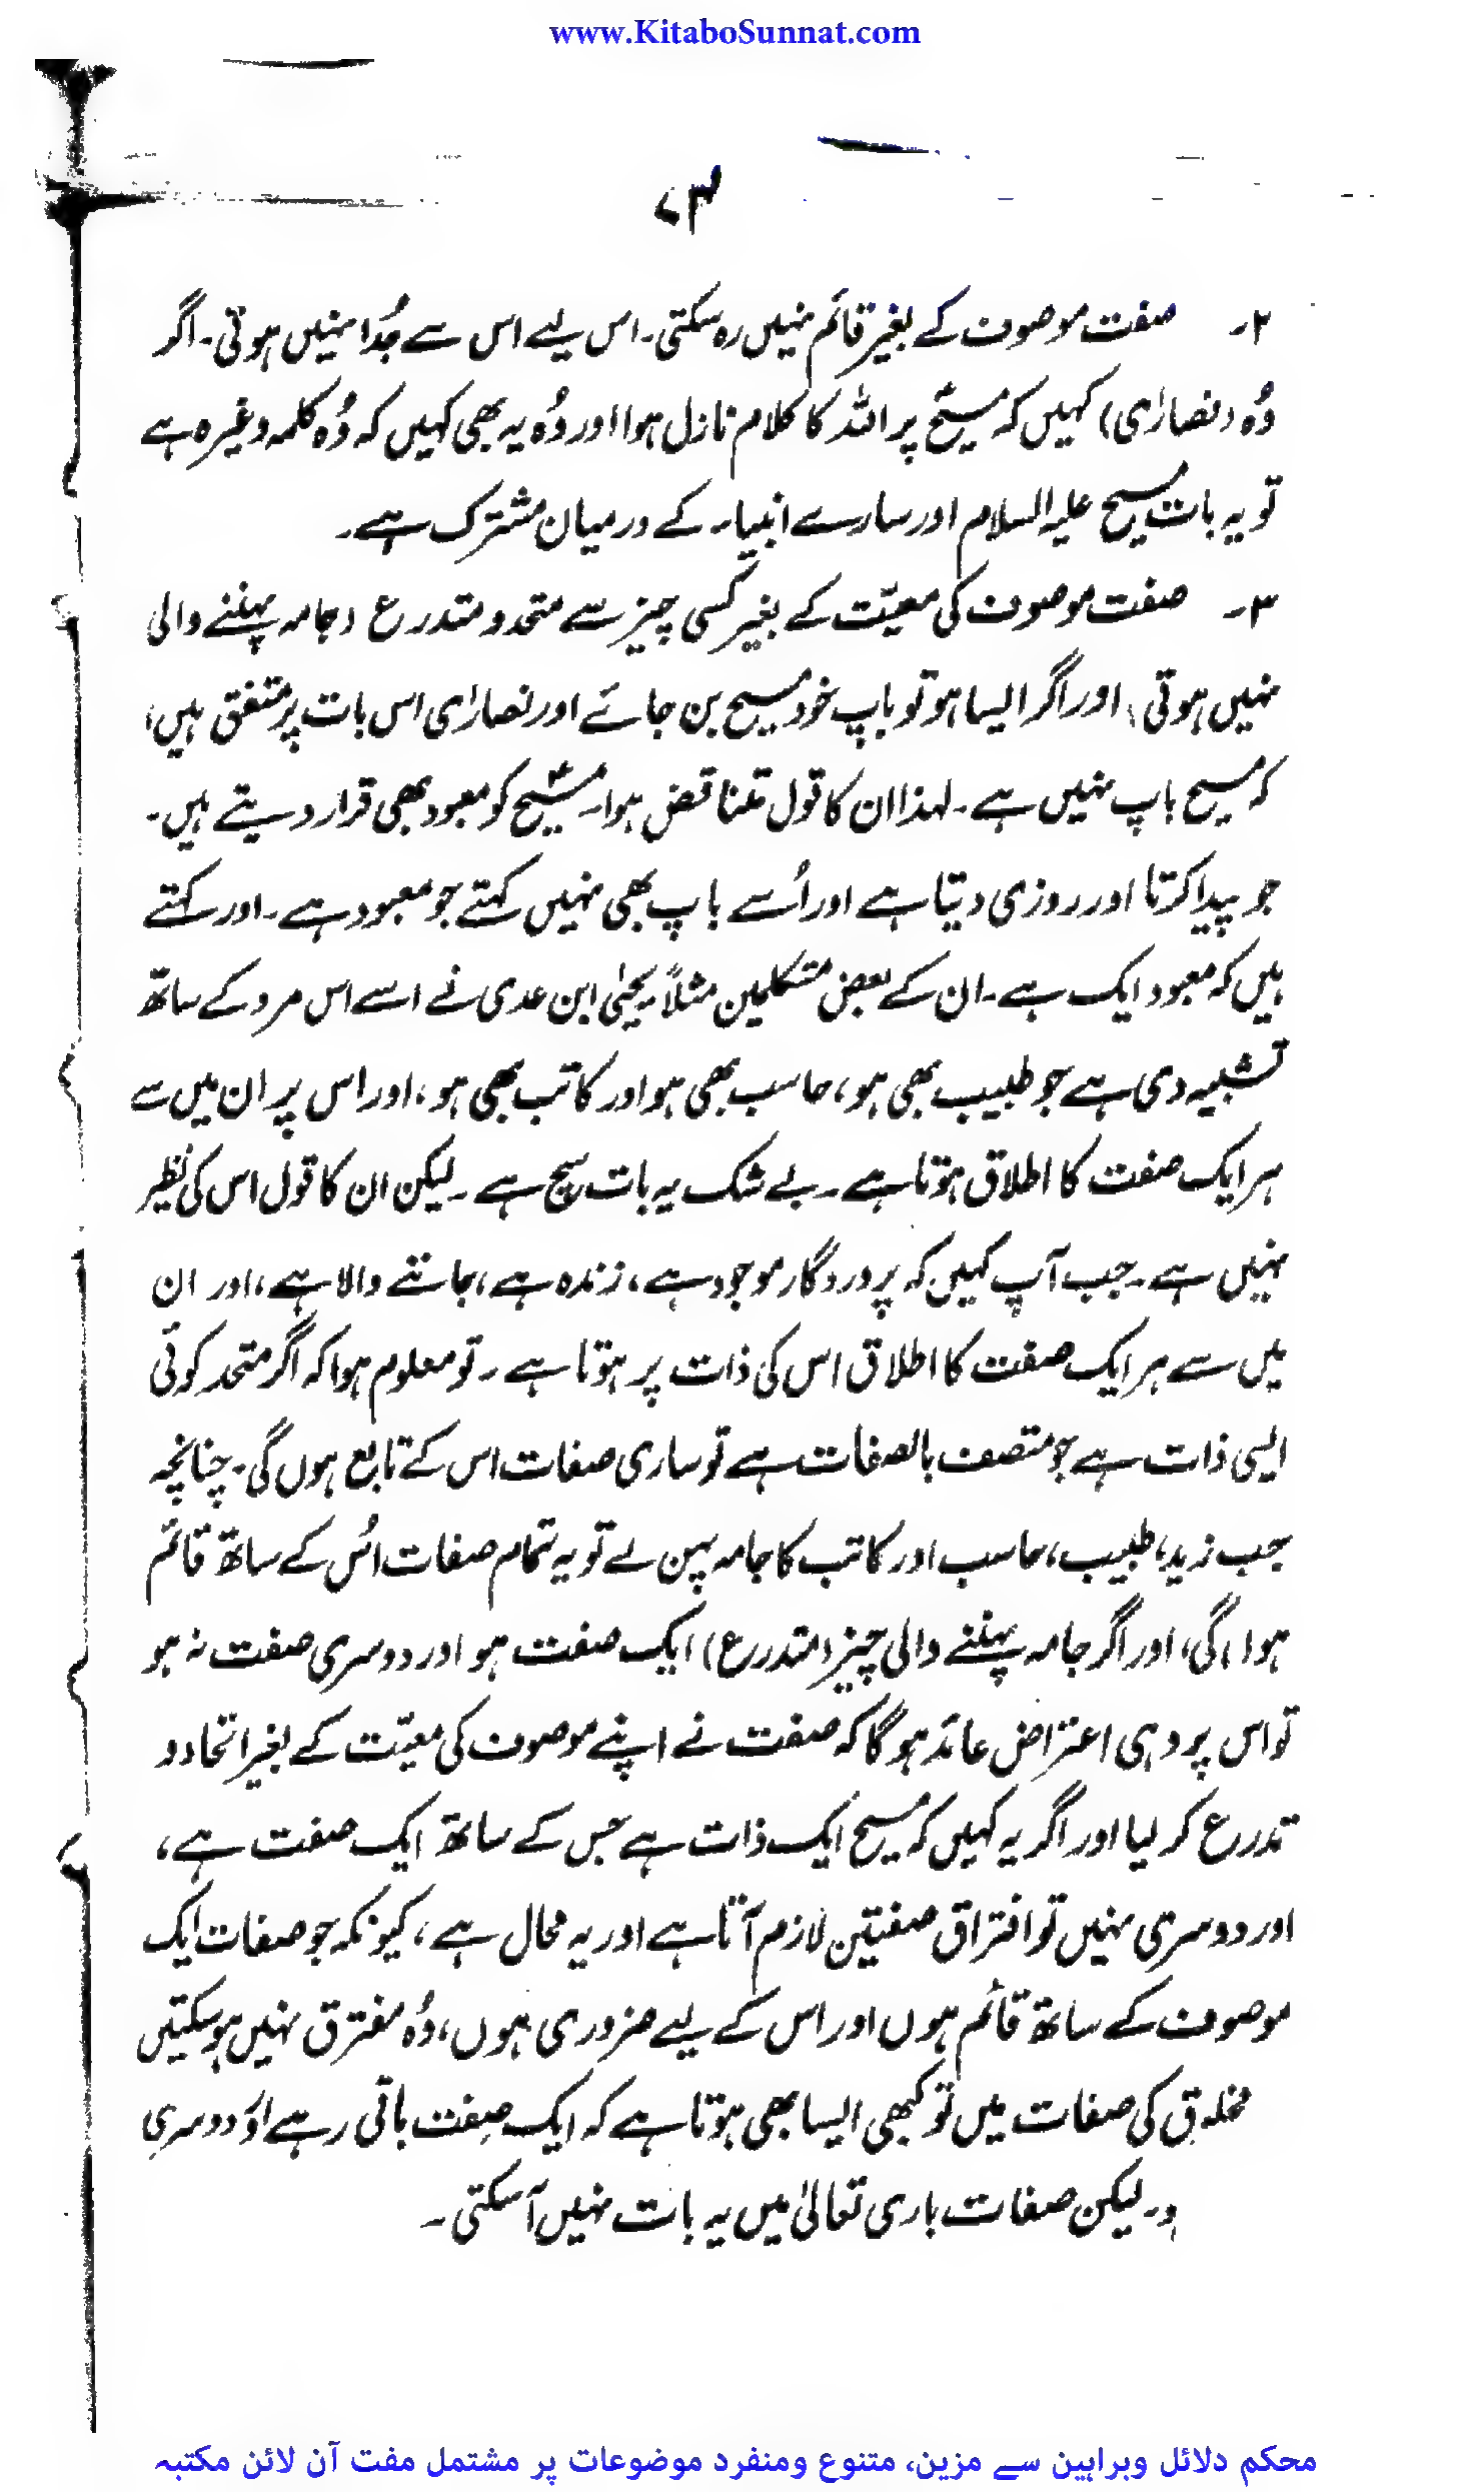 www.KitaboSunnat.com
۷۳
۲۔ صفت موصوف کے بغیر قائم نہیں رہ سکتی۔ اس لیے اس سے جُدا نہیں ہوتی۔ اگر
وُہ (نصارٰی) کہیں کہ مسیحؑ پر اللہ کا کلام نازل ہوا اور وُہ یہ بھی کہیں کہ وُہ کلمہ وغیرہ ہے
تو یہ بات مسیح علیہ السلام اور سارے انبیاء کے درمیان مشترک ہے۔
۳۔ صفت موصوف کی معیّت کے بغیر کسی چیز سے متحد و متدرع (جامہ پہننے والی
نہیں ہوتی، اور اگر ایسا ہو تو باپ خود مسیح بن جائے اور نصارٰی اس بات پر متفق ہیں،
کہ مسیح باپ نہیں ہے۔ لہذا ان کا قول متناقض ہوا۔ مسیحؑ کو معبود بھی قرار دیتے ہیں۔
جو پیدا کرتا اور روزی دیتا ہے اور اُسے باپ بھی نہیں کہتے جو معبود ہے۔ اور کہتے
ہیں کہ معبود ایک ہے۔ ان کے بعض متکلمین مثلاً یحیٰی ابن عدی نے اسے اس مرد کے ساتھ
تشبیہ دی ہے جو طبیب بھی ہو، حاسب بھی ہو اور کاتب بھی ہو، اور اس پر ان میں سے
ہر ایک صفت کا اطلاق ہوتا ہے۔ بے شک یہ بات سچ ہے۔ لیکن ان کا قول اس کی نظیر
نہیں ہے۔ جب آپ کہیں کہ پروردگار موجود ہے، زندہ ہے، جاننے والا ہے، اور ان
میں سے ہر ایک صفت کا اطلاق اس کی ذات پر ہوتا ہے۔ تو معلوم ہوا کہ اگر متحد کوئی
ایسی ذات ہے جو متصف بالصفات ہے تو ساری صفات اس کے تابع ہوں گی۔ چنانچہ
جب زید، طبیب، حاسب اور کاتب کا جامہ پہن لے تو یہ تمام صفات اُس کے ساتھ قائم
ہوں گی، اور اگر جامہ پہننے والی چیز (متدرع) ایک صفت ہو اور دوسری صفت نہ ہو
تو اس پر وہی اعتراض عائد ہوگا کہ صفت نے اپنے موصوف کی معیّت کے بغیر اتحاد و
تدرع کر لیا اور اگر یہ کہیں کہ مسیح ایک ذات ہے جس کے ساتھ ایک صفت ہے،
اور دوسری نہیں تو افتراق صفتین لازم آتا ہے اور یہ محال ہے، کیونکہ جو صفات ایک
موصوف کے ساتھ قائم ہوں اور اس کے لیے ضروری ہوں، وُہ مفترق نہیں ہو سکتیں
مخلوق کی صفات میں تو کبھی ایسا بھی ہوتا ہے کہ ایک صفت باقی رہے اور دوسری
ہو۔ لیکن صفات باری تعالٰی میں یہ بات نہیں آسکتی۔
محکم دلائل وبراہین سے مزین، متنوع ومنفرد موضوعات پر مشتمل مفت آن لائن مکتبہ